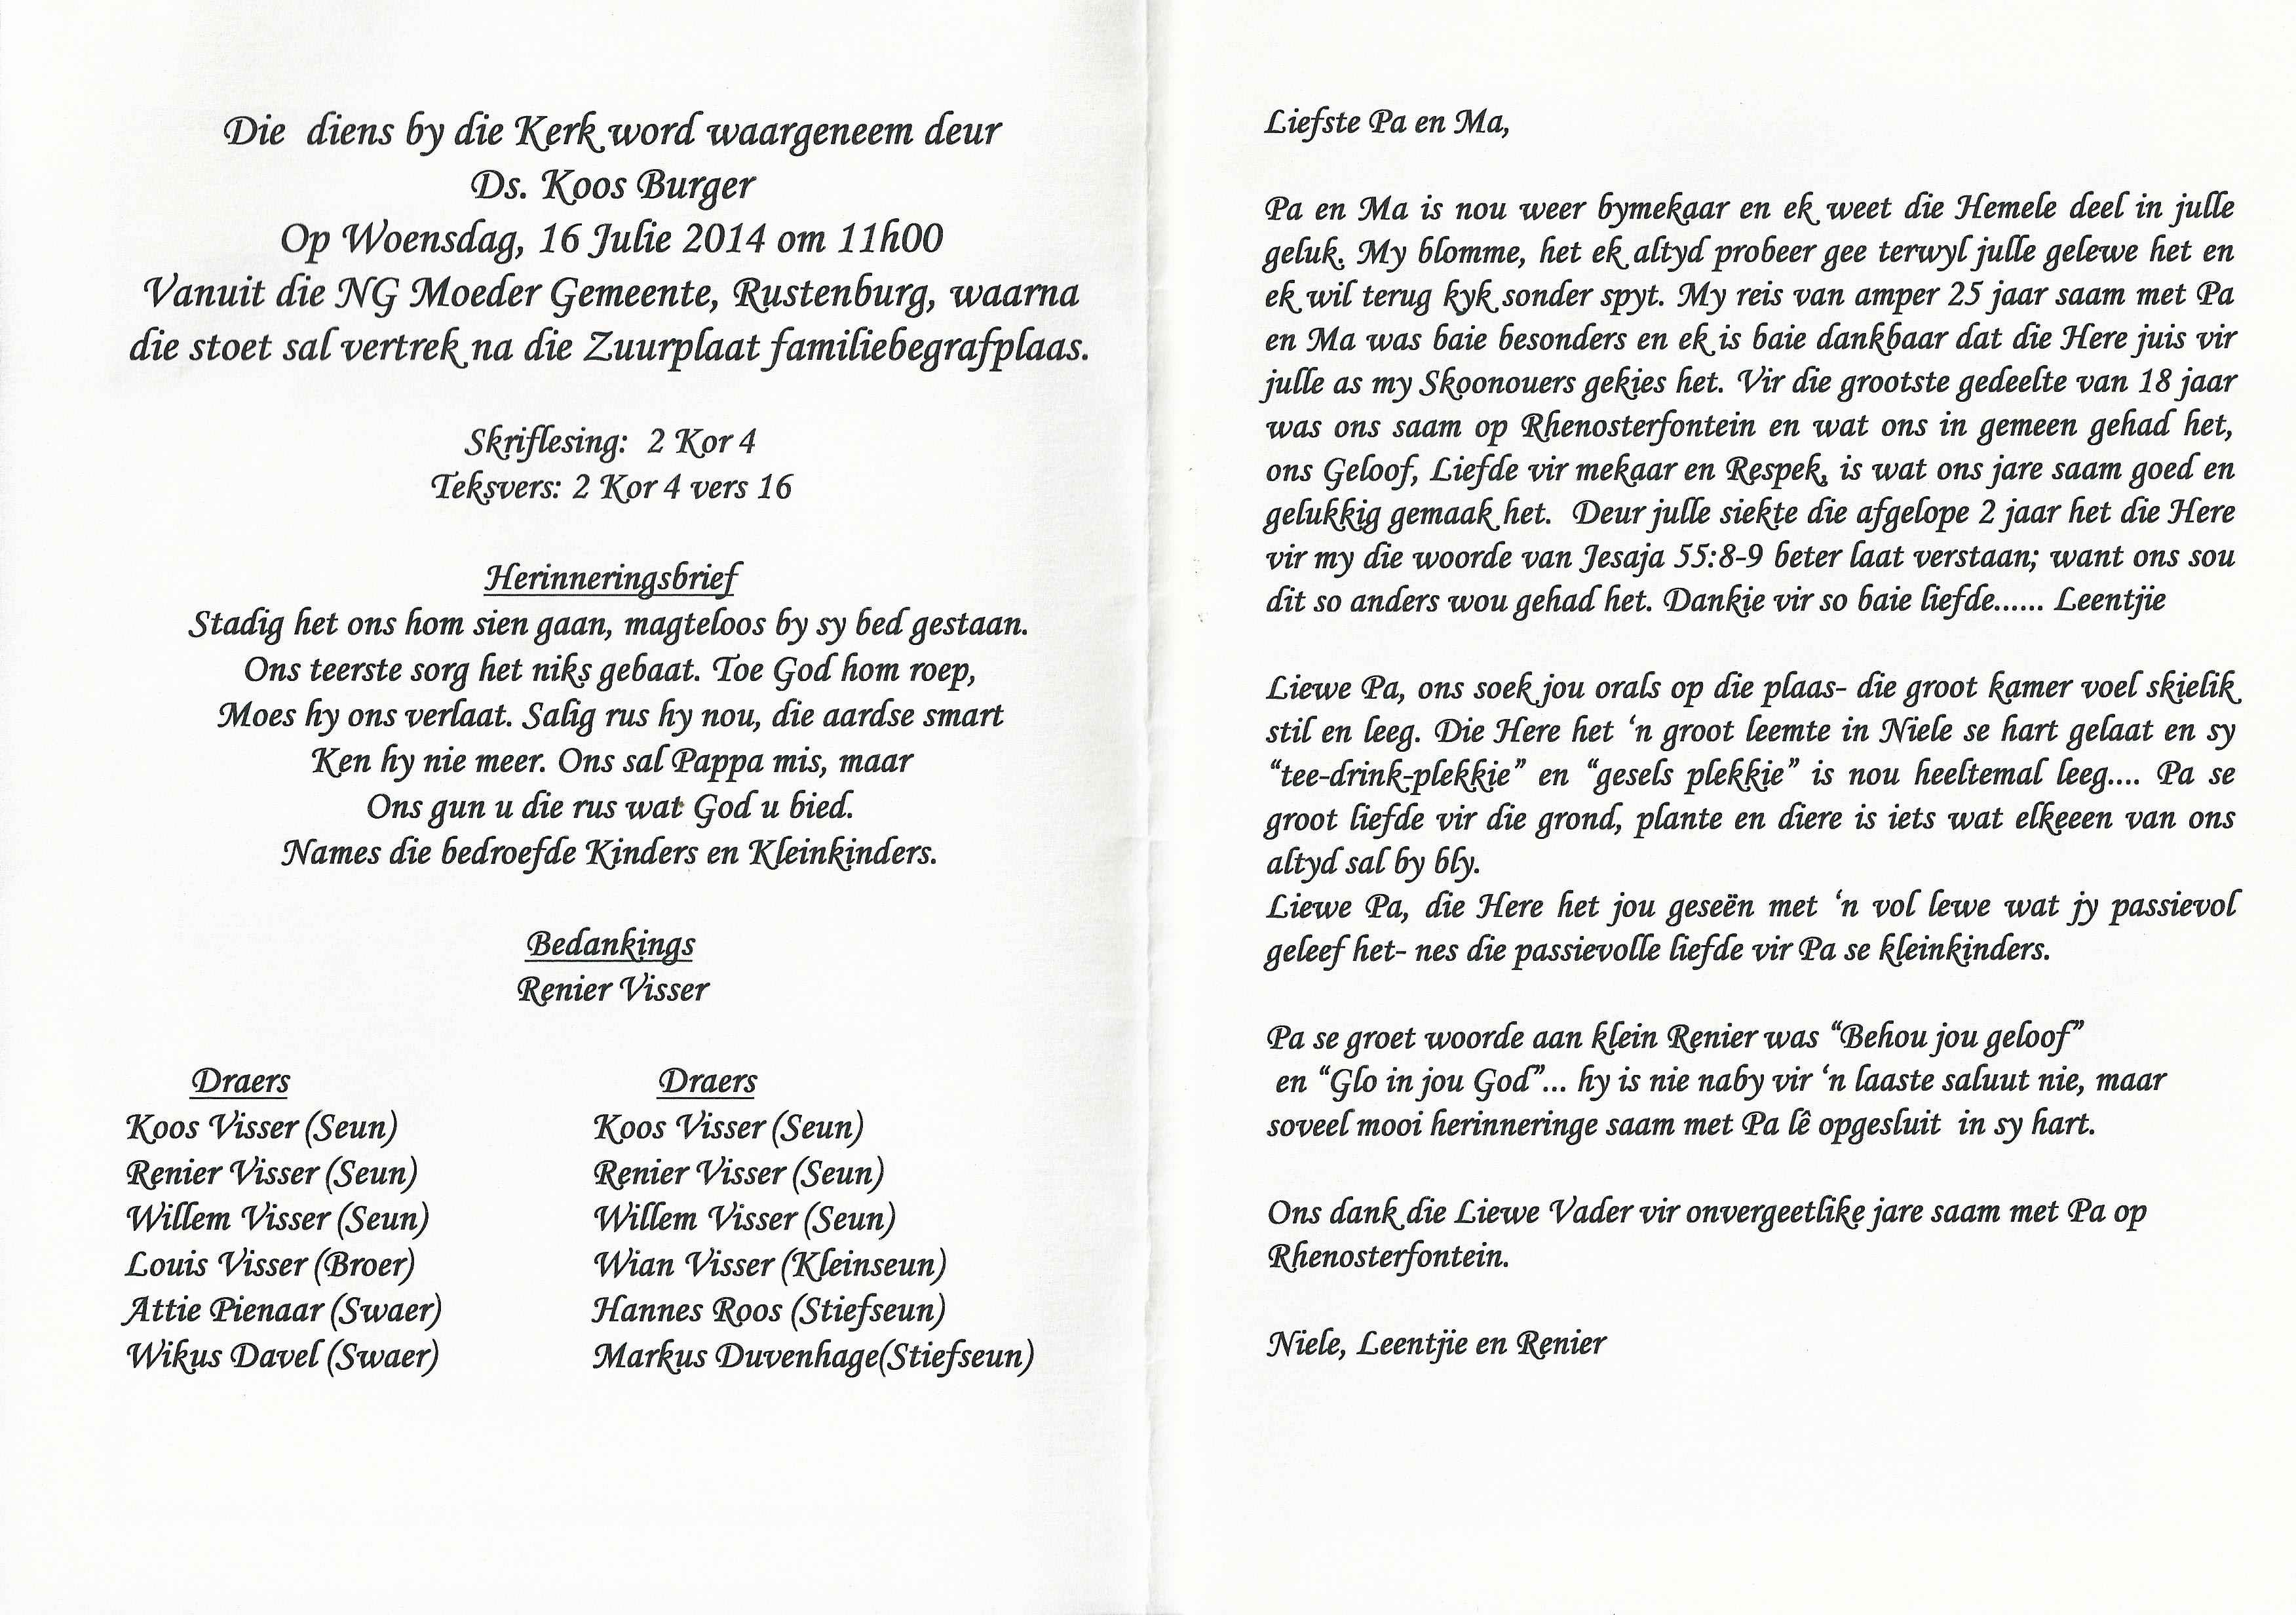 Die diens by die Kerk word waargeneem deur
Ds. Koos Burger
Op Woensdag, 16 Julie 2014 om 11h00
Vanuit die NG Moeder Gemeente, Rustenburg, waarna
die stoet sal vertrek na die Zuurplaat familiebegrafplaas.
Skriflesing: 2 Kor 4
Teksvers: 2 Kor 4 vers 16
Herinneringsbrief
Stadig het ons hom sien gaan, magteloos by sy bed gestaan.
Ons teerste sorg het niks gebaat. Toe God hom roep,
Moes hy ons verlaat. Salig rus hy nou, die aardse smart
Ken hy nie meer. Ons sal Pappa mis, maar
Ons gun u die rus wat God u bied.
Names die bedroefde Kinders en Kleinkinders.
Bedankings
Renier Visser
Draers
Koos Visser (Seun)
Renier Visser (Seun)
Willem Visser (Seun)
Louis Visser (Broer)
Attie Pienaar (Swaer)
Wikus Davel (Swaer)
Draers
Koos Visser (Seun)
Renier Visser (Seun)
Willem Visser (Seun)
Wian Visser (Kleinseun)
Hannes Roos (Stiefseun)
Markus Duvenhage(Stiefseun)
Liefste Pa en Ma,
Pa en Ma is nou weer bymekaar en ek weet die Hemele deel in julle
geluk. My blomme, het ek altyd probeer gee terwyl julle gelewe het en
ek wil terug kyk sonder spyt. My reis van amper 25 jaar saam met Pa
en Ma was baie besonders en ek is baie dankbaar dat die Here juis vir
julle as my Skoonouers gekies het. Vir die grootste gedeelte van 18 jaar
was ons saam op Rhenosterfontein en wat ons in gemeen gehad het,
ons Geloof, Liefde vir mekaar en Respek, is wat ons jare saam goed en
gelukkig gemaak het. Deur julle siekte die afgelope 2 jaar het die Here
vir my die woorde van Jesaja 55:8-9 beter laat verstaan; want ons sou
dit so anders wou gehad het. Dankie vir so baie liefde...... Leentjie
Liewe Pa, ons soek jou orals op die plaas- die groot kamer voel skielik
stil en leeg. Die Here het ‘n groot leemte in Niele se hart gelaat en sy
“tee-drink-plekkie” en “gesels plekkie” is nou heeltemal leeg.... Pa se
groot liefde vir die grond, plante en diere is iets wat elkeeen van ons
altyd sal by bly.
Liewe Pa, die Here het jou geseën met ‘n vol lewe wat jy passievol
geleef het- nes die passievolle liefde vir Pa se kleinkinders.
Pa se groet woorde aan klein Renier was “Behou jou geloof”
en “Glo in jou God”... hy is nie naby vir ‘n laaste saluut nie, maar
soveel mooi herinneringe saam met Pa lê opgesluit in sy hart.
Ons dank die Liewe Vader vir onvergeetlike jare saam met Pa op
Rhenosterfontein.
Niele, Leentjie en Renier